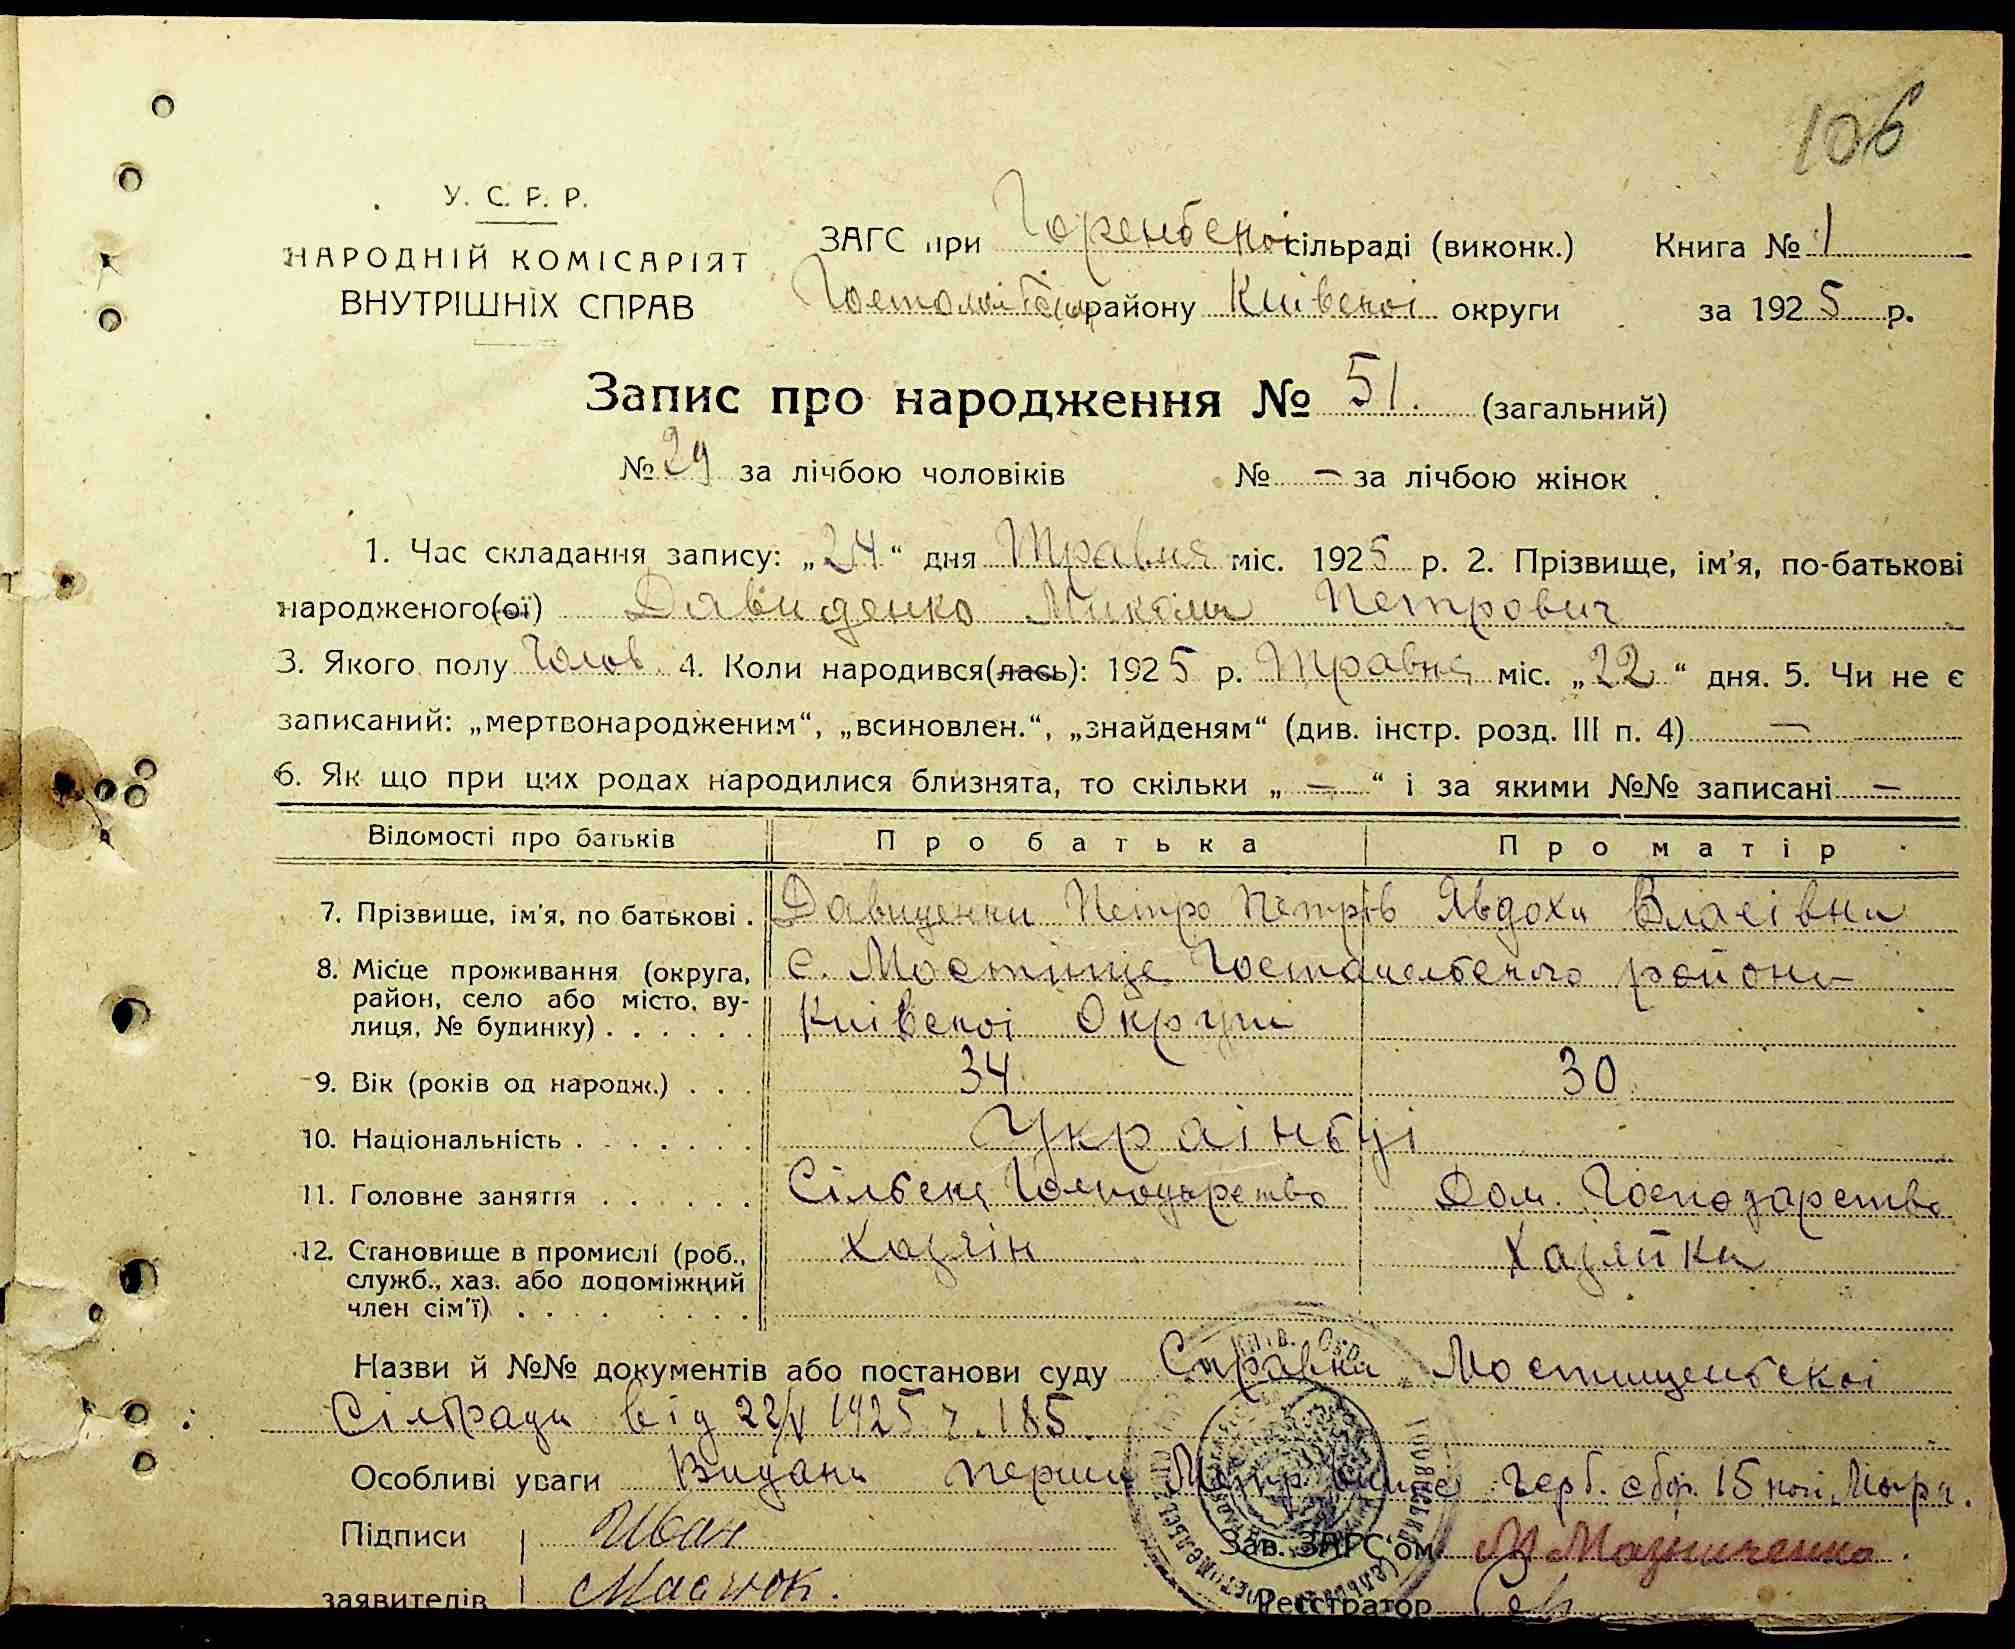 106
У. С. Р. Р.
НАРОДНІЙ КОМІСАРІЯТ
ВНУТРІШНІХ СПРАВ
ЗАГС при Горенської сільраді (виконк.) Книга № 1
району Київскоі округи за 1925 р.
Запис про народження № 51. (загальний)
№ 29 за лічбою чоловіків № — за лічбою жінок
1. Час складання запису: „24“ дня Травня міс. 1925 р. 2. Прізвище, ім'я, по-батькові
народженого(ої) Давиденко Микола Петрович
3. Якого полу Чолов 4. Коли народився(лась): 1925 р. Травня міс. „22“ дня. 5. Чи не є
записаний: „мертвонародженим“, „всиновлен.“, „знайденям“ (див. інстр. розд. III п. 4) —
6. Як що при цих родах народилися близнята, то скільки „ — “ і за якими №№ записані —
Відомості про батьків Про батька Про матір
7. Прізвище, ім'я, по батькові . Давиденки Петро Петрів Явдоха Власівна
8. Місце проживання (округа, с. Мостище Гостомельського району
район, село або місто, ву-
лиця, № будинку) . . . . . . Київскоі Округи
9. Вік (років од народж.) . . . 34 30
10. Національність . . . . . . . Украіньці
11. Головне заняття . . . . . . Сільске Господарство Дом. Господарство
12. Становище в промислі (роб., Хазяін Хазяйка
служб., хаз. або допоміжний
член сім'ї) . . . . . . . .
Назви й №№ документів або постанови суду Справка Мостищенськоі
Сільради від 22/V 1925 185.
Особливі уваги Видана герб. збор. 15 коп.
Підписи Иван Зав. ЗАГС'ом
заявителів Масюк. Реєстратор